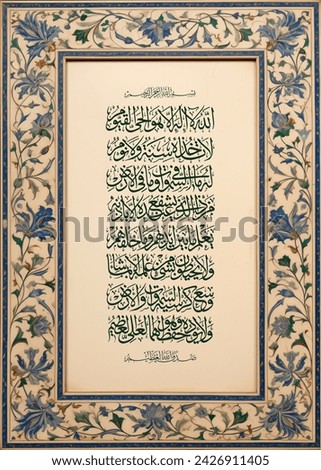 بسم الله الرحمن الرحيم
الله لا اله الا هو الحي القيوم
لا تاخذه سنة ولا نوم
له ما في السموات وما في الارض
من ذا الذي يشفع عنده الا باذنه
يعلم ما بين ايديهم وما خلفهم
ولا يحيطون بشئ من علمه الا بما شاء
وسع كرسيه السموات والارض
ولا يؤده حفظهما وهو العلي العظيم
صدق الله العظيم
shutterstock
shutterstock.com · 2426911405